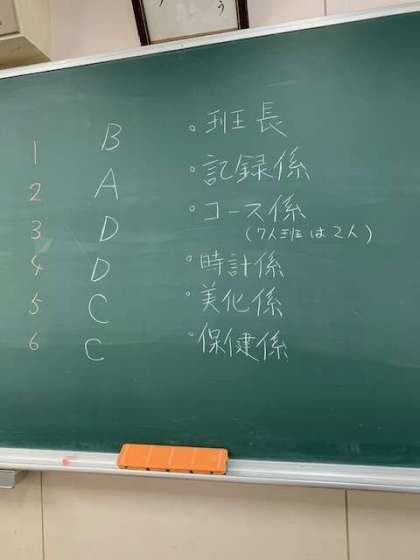 1 B ・班長
2 A ・記録係
3 D ・コース係
(7人班は2人)
4 D ・時計係
5 C ・美化係
6 C ・保健係